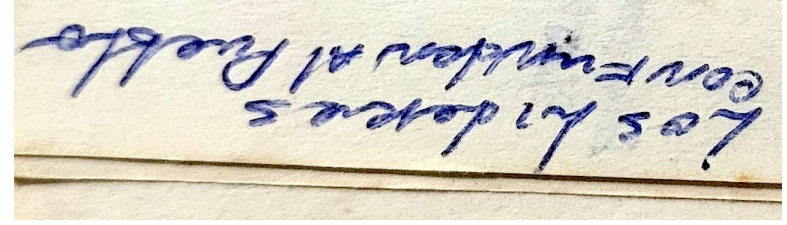 Los Lideres
conFunden Al Pueblo